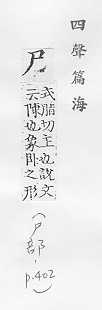 四聲篇海
尸
式脂切主也説文
云陳也象卧之形
(尸部,
p.402)